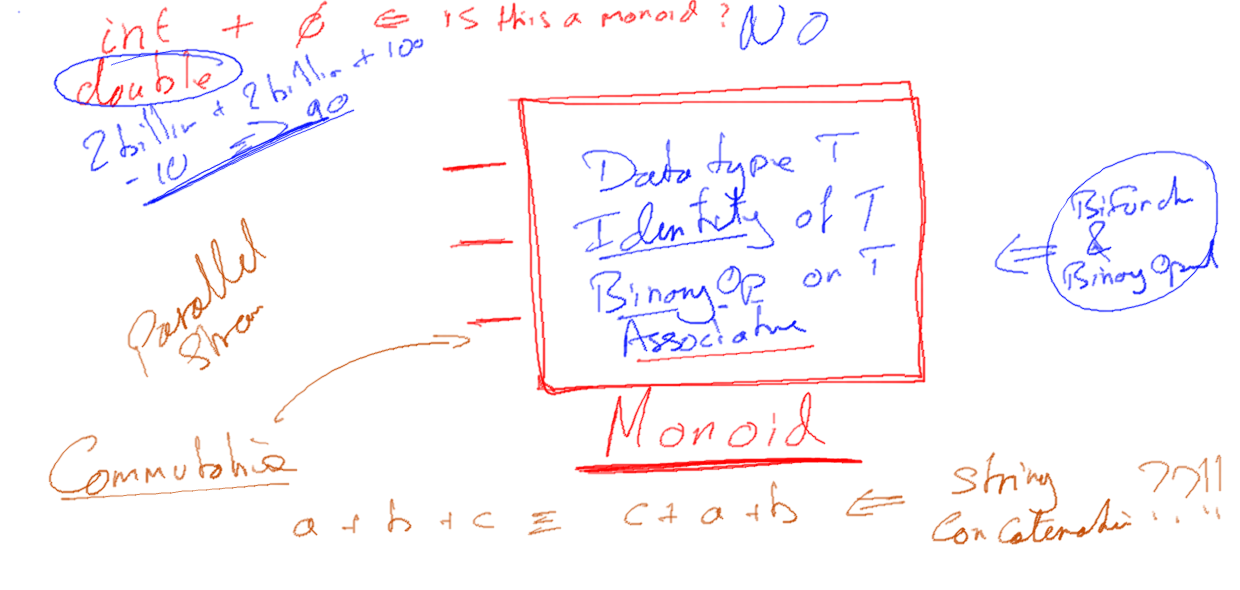 int + ø ⇐ is this a monoid? NO
double
2 billion + 2 billion + 100
- 10 => 90
Data type T
Identity of T
Binary Op on T
Associative
Monoid
Parallel
Stream
Commutative
a + b + c ≡ c + a + b ⇐ String
Concatenation ??!!
&